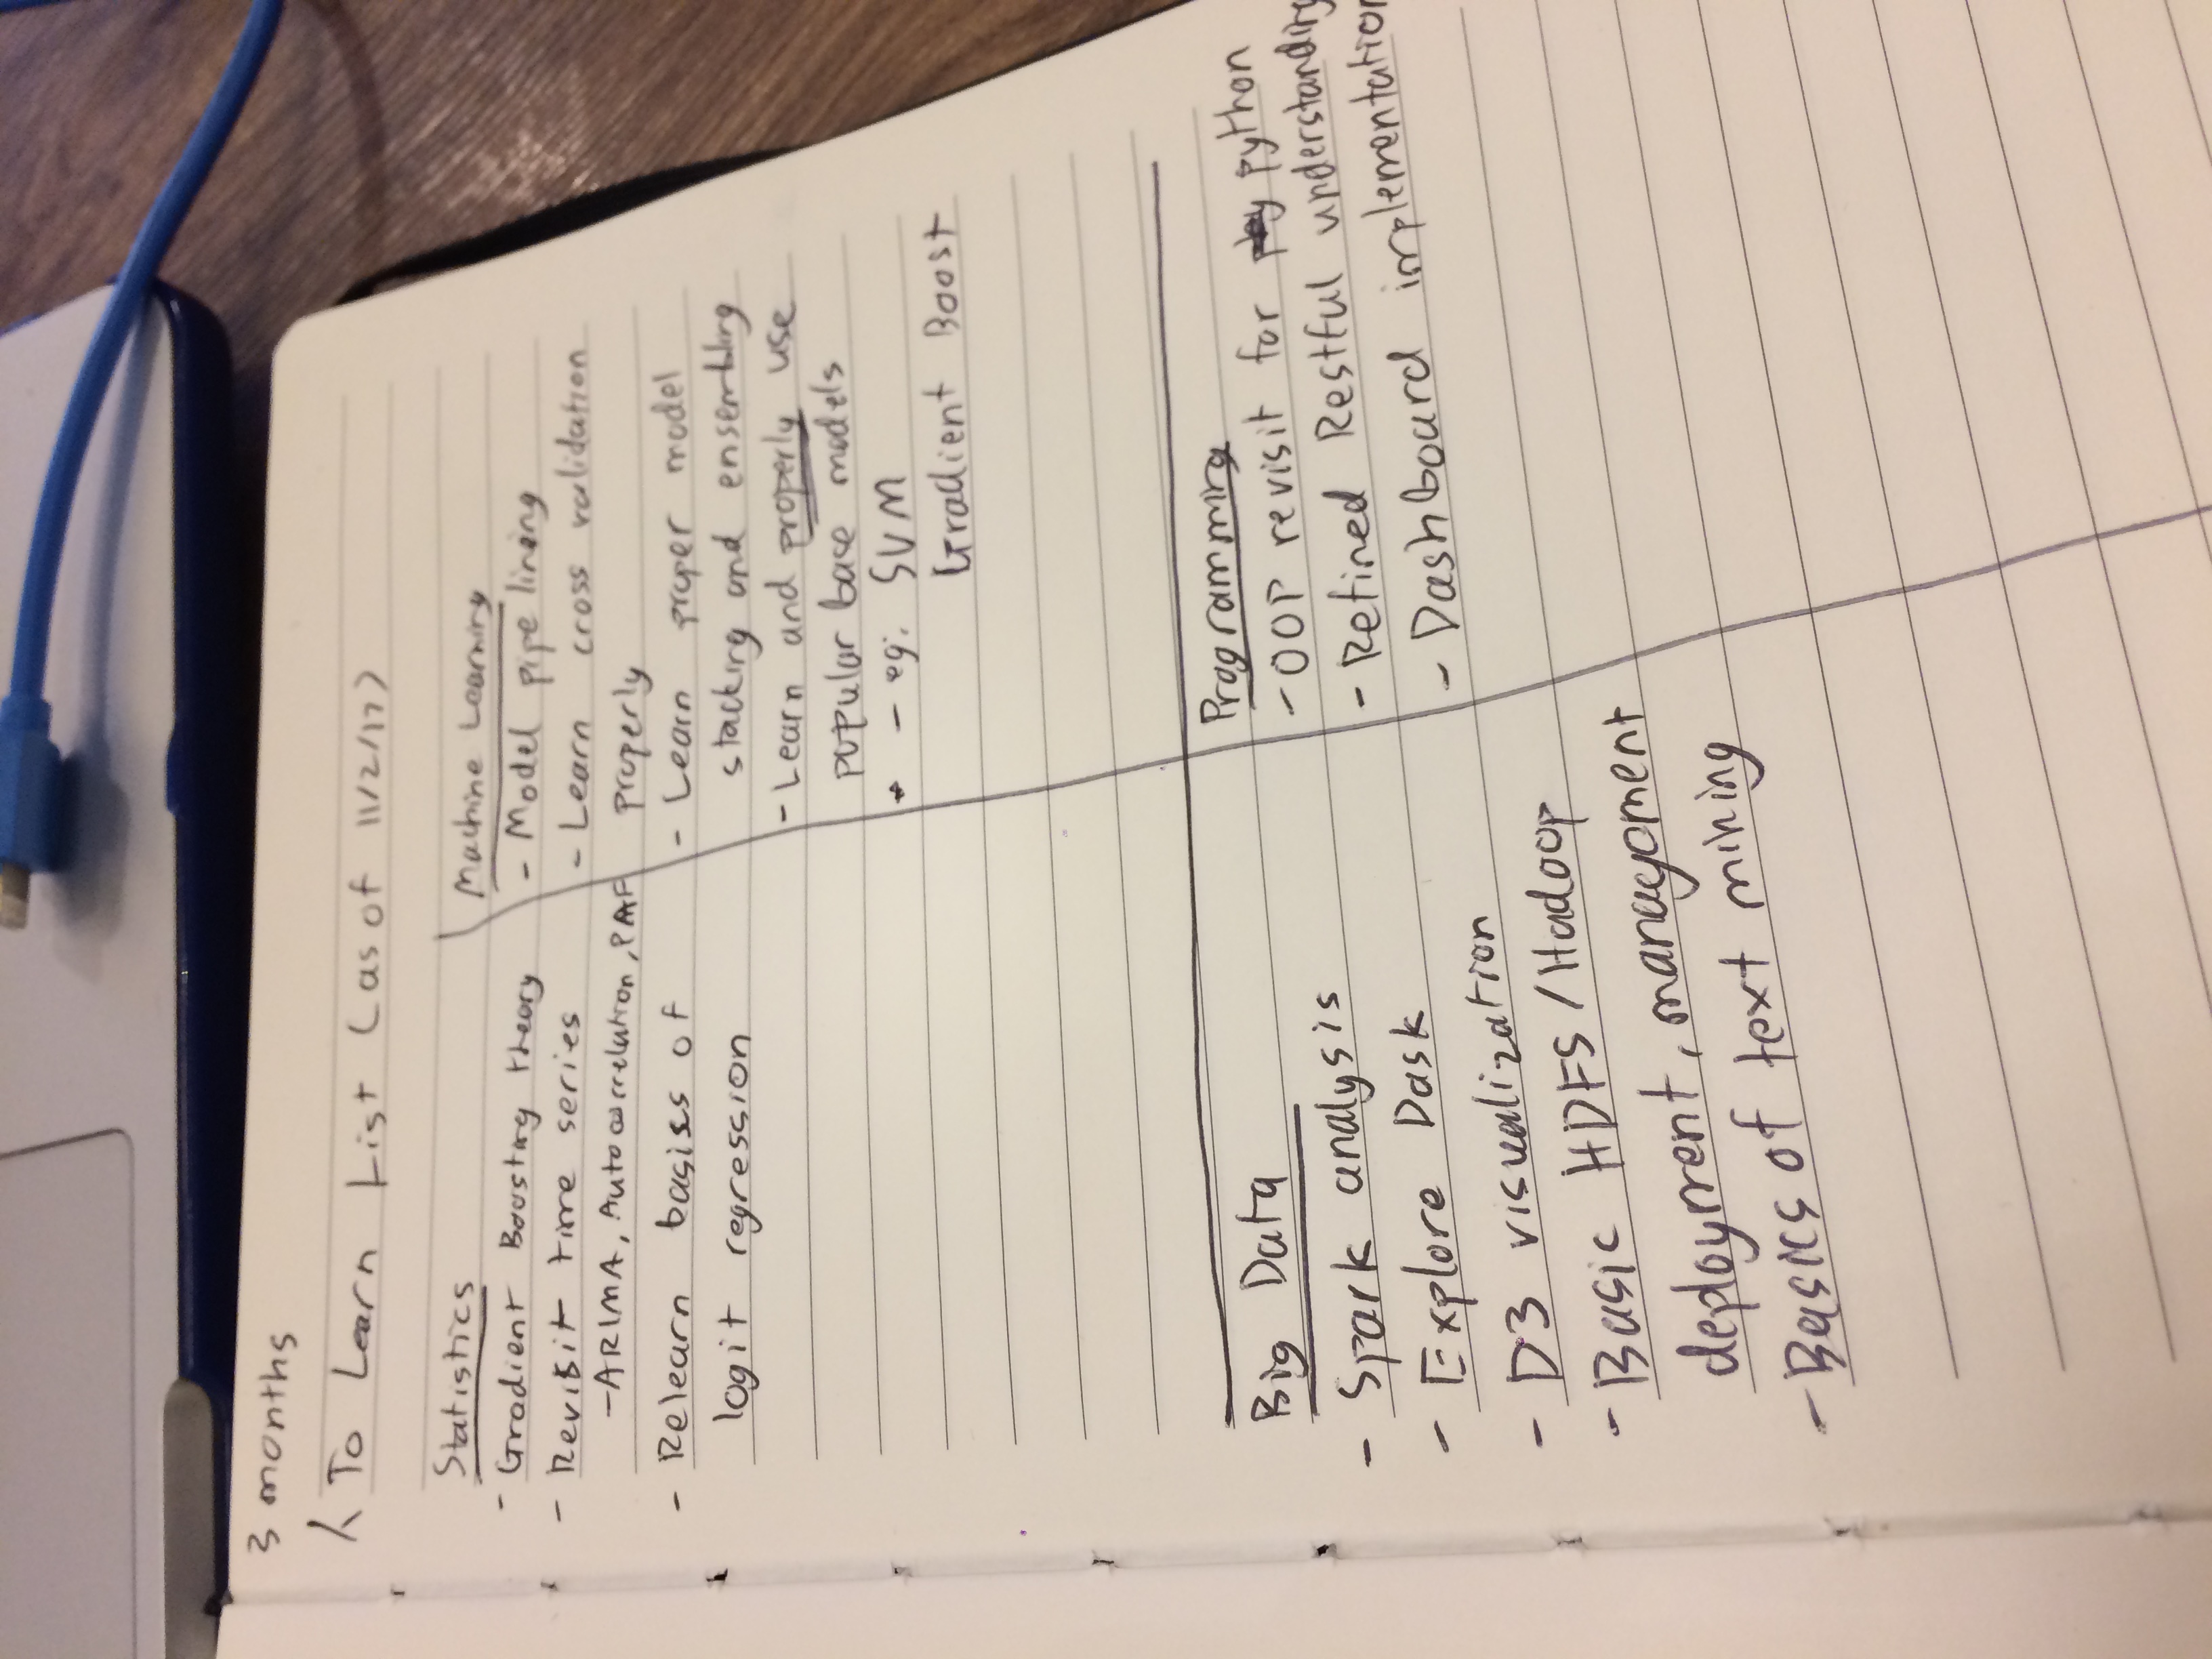 3 months
To Learn List (as of 11/2/17)
Statistics
- Gradient Boosting theory
- Revisit time series
- ARIMA, Autocorrelation, PAF
- Relearn basiss of
logit regression
Machine Learning
- Model pipe lining
- Learn cross validation
properly
- Learn proper model
stacking and ensembling
- Learn and properly use
popular base models
- eg. SVM
Gradient Boost
Big Data
- Spark analysis
- Explore Dask
- D3 visualization
- Basic HDFS / Hadoop
deployment, management
- Basics of text mining
Programming
- OOP revisit for python
- Refined Restful understanding
- Dashboard implementation